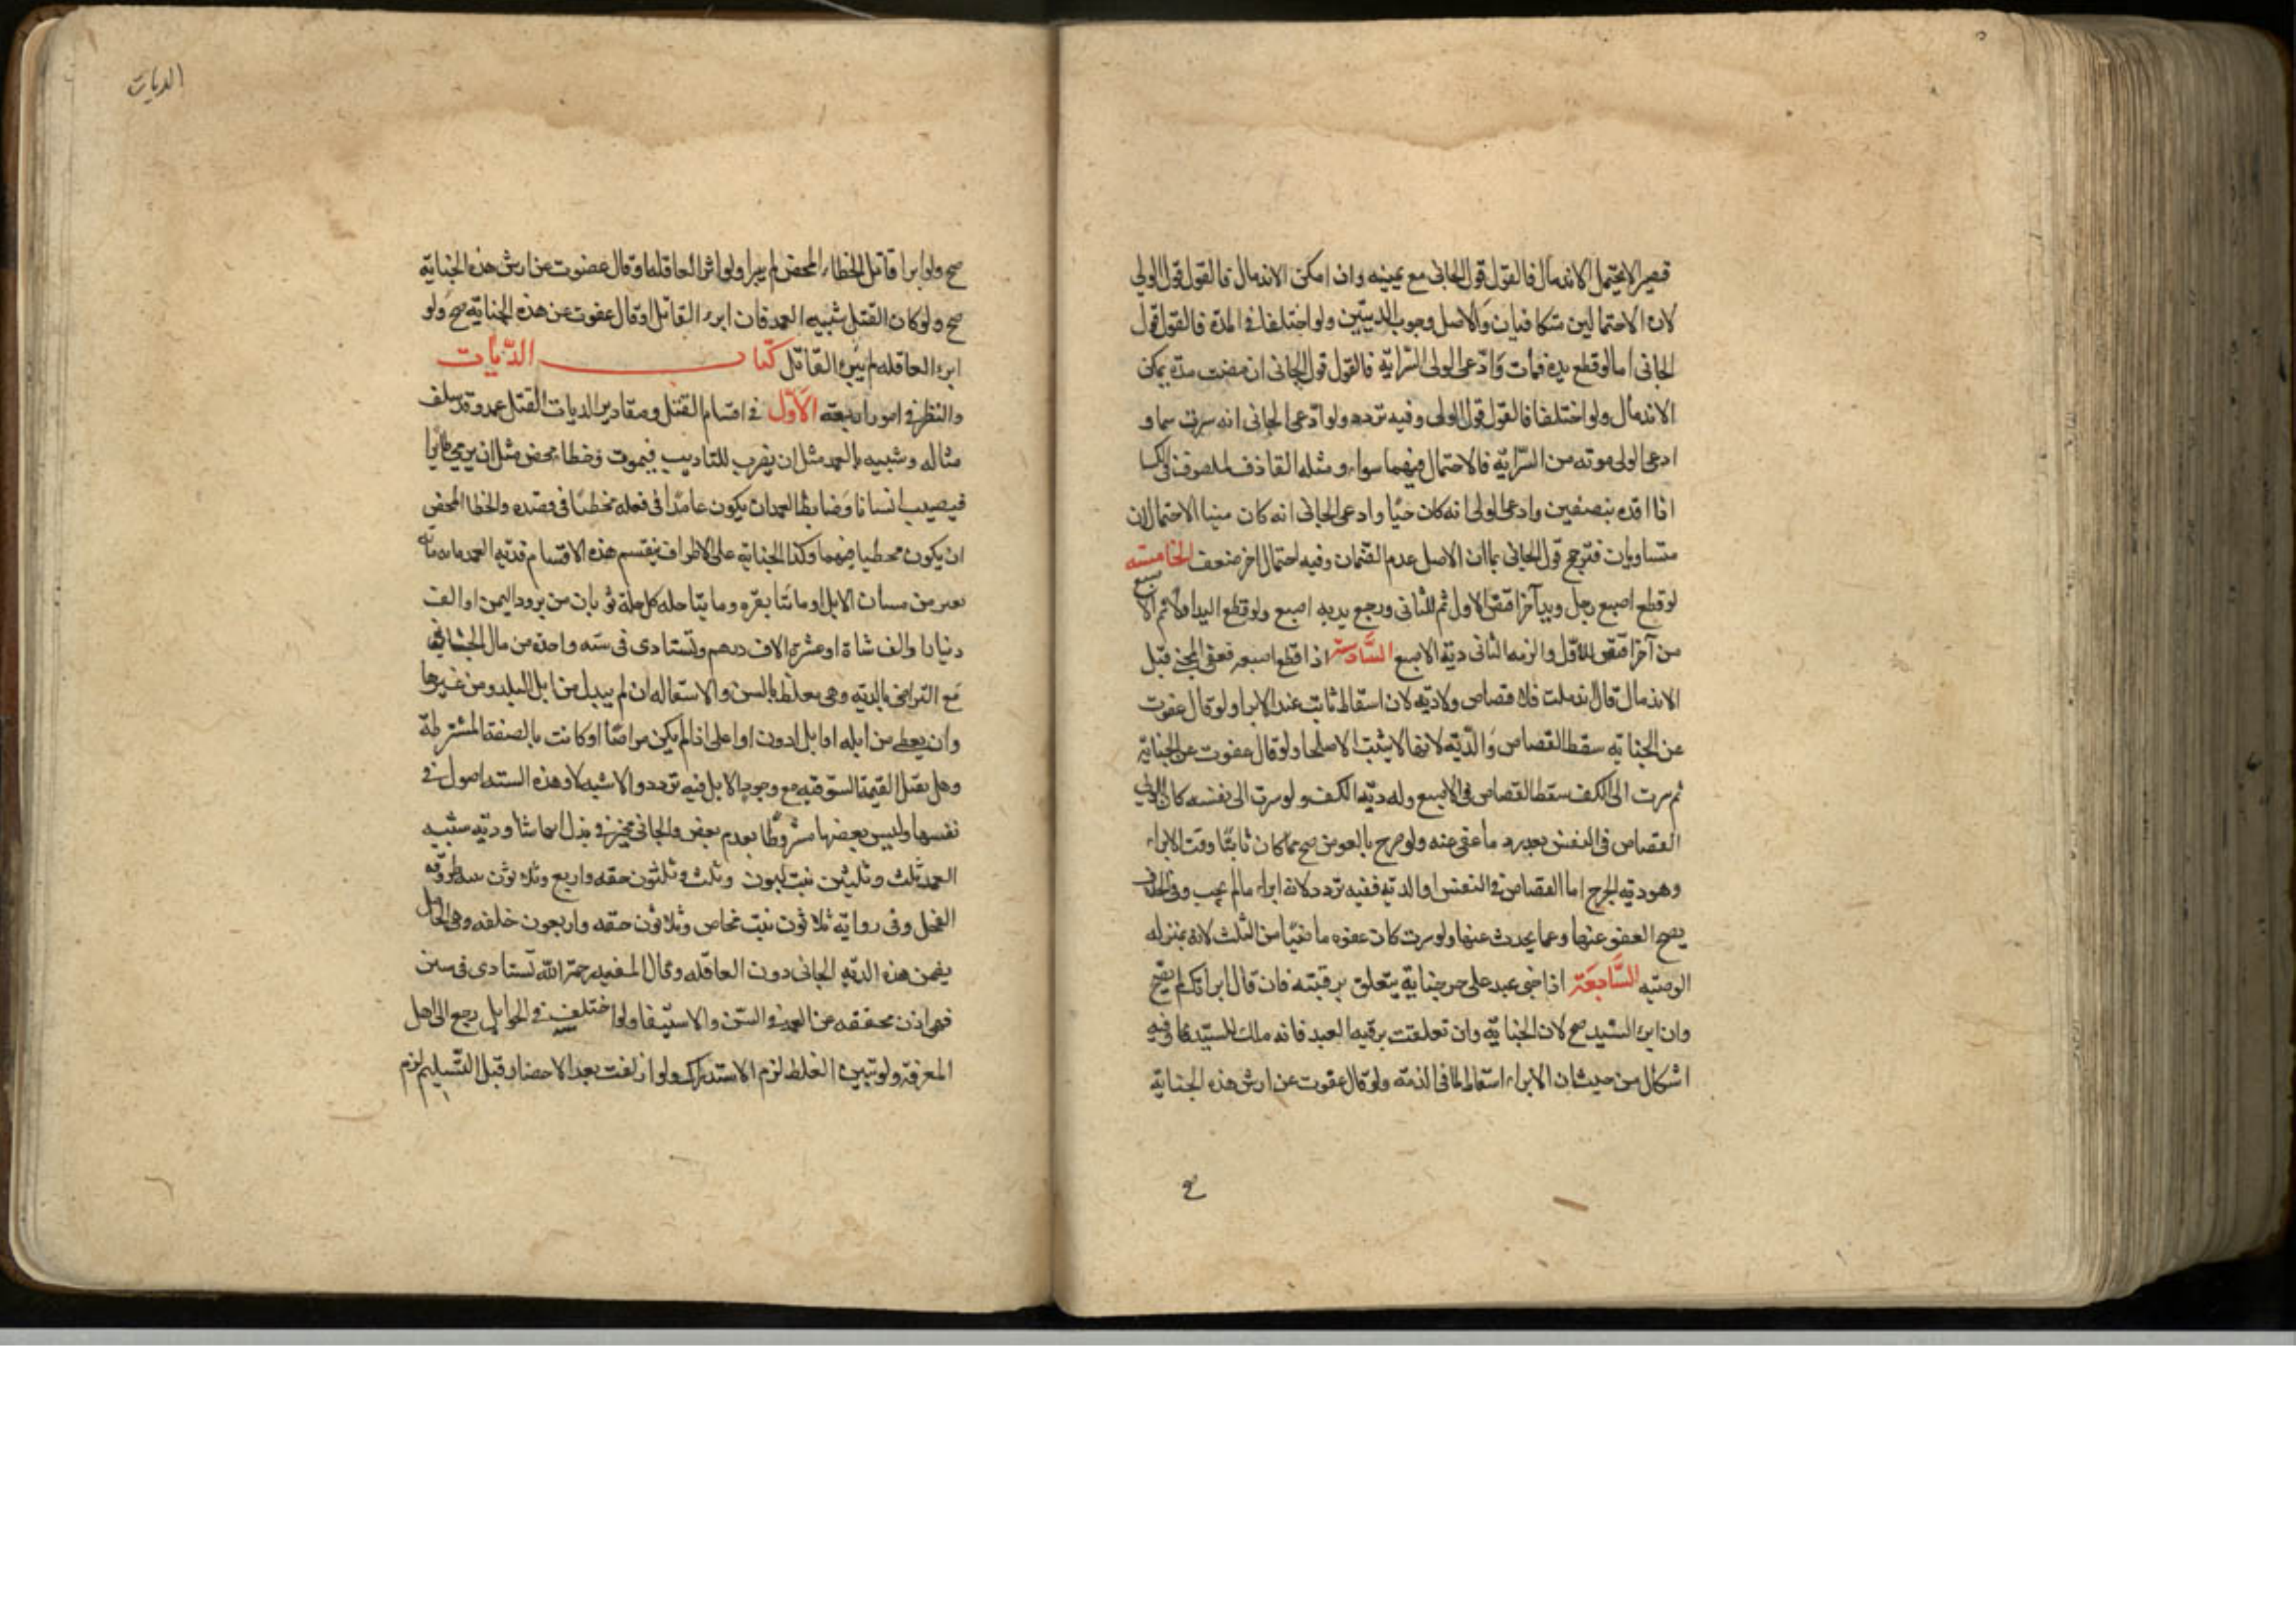 قصير لا يحتمل الاندمال فالقول قول الجانى مع يمينه وان امكن الاندمال فالقول قول الولى
لان الاحتمالين متكافيان والاصل وجوب الديتين ولو اختلفا فى المدة فالقول قول
الجانى اما لو قطع يده فمات وادعى الولى السراية فالقول قول الجانى ان مضت مدة يمكن
الاندمال ولو اختلفا فالقول قول الولى وفيه تردد ولو ادعى الجانى انه شرب سما و
ادعى الولى موته من السراية فالاحتمال فيهما سواء ومثله الملفوف فى الكسا
اذا قده بنصفين وادعى الولى انه كان حيا وادعى الجانى انه كان ميتا الاحتمالان
متساويان فترجح قول الجانى بما ان الاصل عدم الضمان وفيه احتمال اخر ضعف الخامسة
لو قطع اصبع رجل ويد آخر اقتص للاول ثم للثانى ورجع بدية اصبع ولو قطع اليد اولا ثم الاصبع
من آخر اقتص للاول والزمه الثانى دية الاصبع السادسة اذا قطع اصبعه فعفى المجنى قبل
الاندمال فان اندملت فلا قصاص ولا دية لان اسقاط ثابت عند الابرا ولو قال عفوت
عن الجناية سقط القصاص والدية لانها لا يثبت الا صلحا ولو قال عفوت عن الجناية
ثم سرت الى الكف سقط القصاص فى الاصبع وله دية الكف ولو سرت الى نفسه كان للولى
القصاص فى النفس بعد رد ما عفى عنه ولو صرح بالعفو صح مما كان ثابتا وقت الابراء
وهو دية الجرح اما القصاص فى النفس او الدية ففيه تردد لانه ابراء مالم يجب وفى الخلاف
يصح العفو عنها وعما يحدث عنها ولو سرت كان عفوه ماضيا من الثلث لانه بمنزله
الوصيه السابعة اذا جنى عبد على حر جناية يتعلق برقبته فان قال ابراتك لم يصح
وان ابرا السيد صح لان الجناية وان تعلقت برقبه العبد فانه ملك للسيد وفيه
اشكال من حيث ان الابراء اسقاط لما فى الذمة ولو قال عفوت عن ارش هذه الجناية
الديات
صح ولو ابرا قاتل الخطاء المحض لم يبرا ولو ابرا العاقلة او قال عفوت عن ارش هذه الجناية
صح ولو كان القتل شبيه العمد فان ابرء القاتل او قال عفوت عن هذه الجناية صح ولو
ابرء العاقله لم يبرء القاتل كتاب الديات
والنظر فى امور اربعة الاول فى اقسام القتل ومقادير الديات القتل عمد وقد سلف
مثاله وشبيه بالعمد مثل ان يضرب للتاديب فيموت وخطاء محض مثل ان يرمى طايرا
فيصيب انسانا وضابط العمد ان يكون عامدا فى فعله مخطئا فى قصده والخطا المحض
ان يكون مخطيا فيهما وكذا الجناية على الاطراف ينقسم هذه الاقسام فدية العمد مائة
بعير من مسان الابل او مائتا بقره ومايتا حله كل حلة ثوبان من برود اليمن او الف
دينار او الف شاة او عشرة الاف درهم وتستادى فى سنه واحده من مال الجانى
مع التراضى بالدية وهى مغلظة بالسن والاستعاله ان لم يبذل من ابل البلد ومن غيرها
وان يعطى من ابله او ابل ادون او اعلى اذا لم يكن مراضا او كانت بالصفة المشترطة
وهل يقبل القيمة السوقيه مع وجود الابل فيه تردد والاشبه لا وهذه الستة اصول فى
نفسها وليس بعضها مشروطا بعدم بعض والجانى مخير فى بذل ايها شا ودية شبيه
العمد ثلث وثلثون بنت لبون وثلث وثلثون حقه واربع وثلاثون ثنيه طروقه
الفحل وفى رواية ثلاثون بنت مخاض وثلاثون حقه واربعون خلفه وهى الحامل
يضمن هذه الدية الجانى دون العاقله وقال المفيد رحمه الله تستادى فى سنين
فهى اذن مخففه عن العمد فى السن والاستيفا ولو اختلف فى الحوامل رجع الى اهل
المعرفة ولو تبين الغلط لزم الاستدراك ولو ازلقت بعد الاحضار قبل التسليم لزم